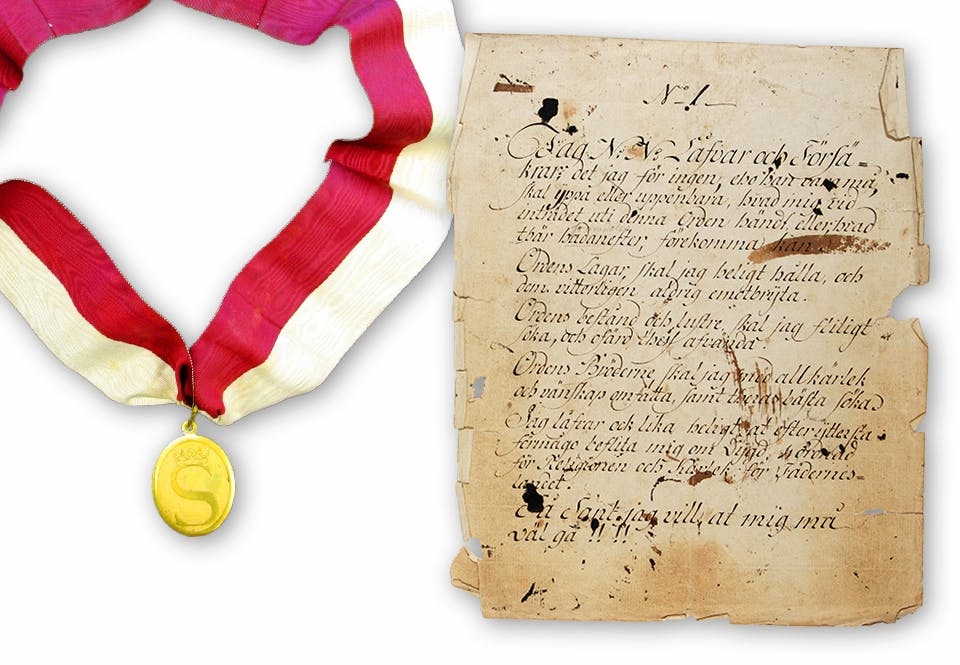 S
No 1
Jag N: N: Låfvar och Försä=
krar, det jag för ingen, eho han vara må,
skal yppa eller uppenbara, hvad mig vid
inträdet uti denna Orden händt, eller hvad
thär hädanefter, förekomma kan
Ordens Lagar, skal jag heligt hålla, och
dem vitterligen aldrig emotbryta.
Ordens bestånd och lustre, skal jag flitigt
söka, och ofärd thess afvända.
Ordens Bröderne, skal jag med all kärlek
och vänskap omfatta, samt theras bästa söka.
Jag låfvar och lika heligt, at efter ytterska
förmågo beflita mig om Dygd, vördnad
för Religionen och Kärlek för Fädernes=
landet.
Så Sant jag vill, at mig må
väl gå !! !!